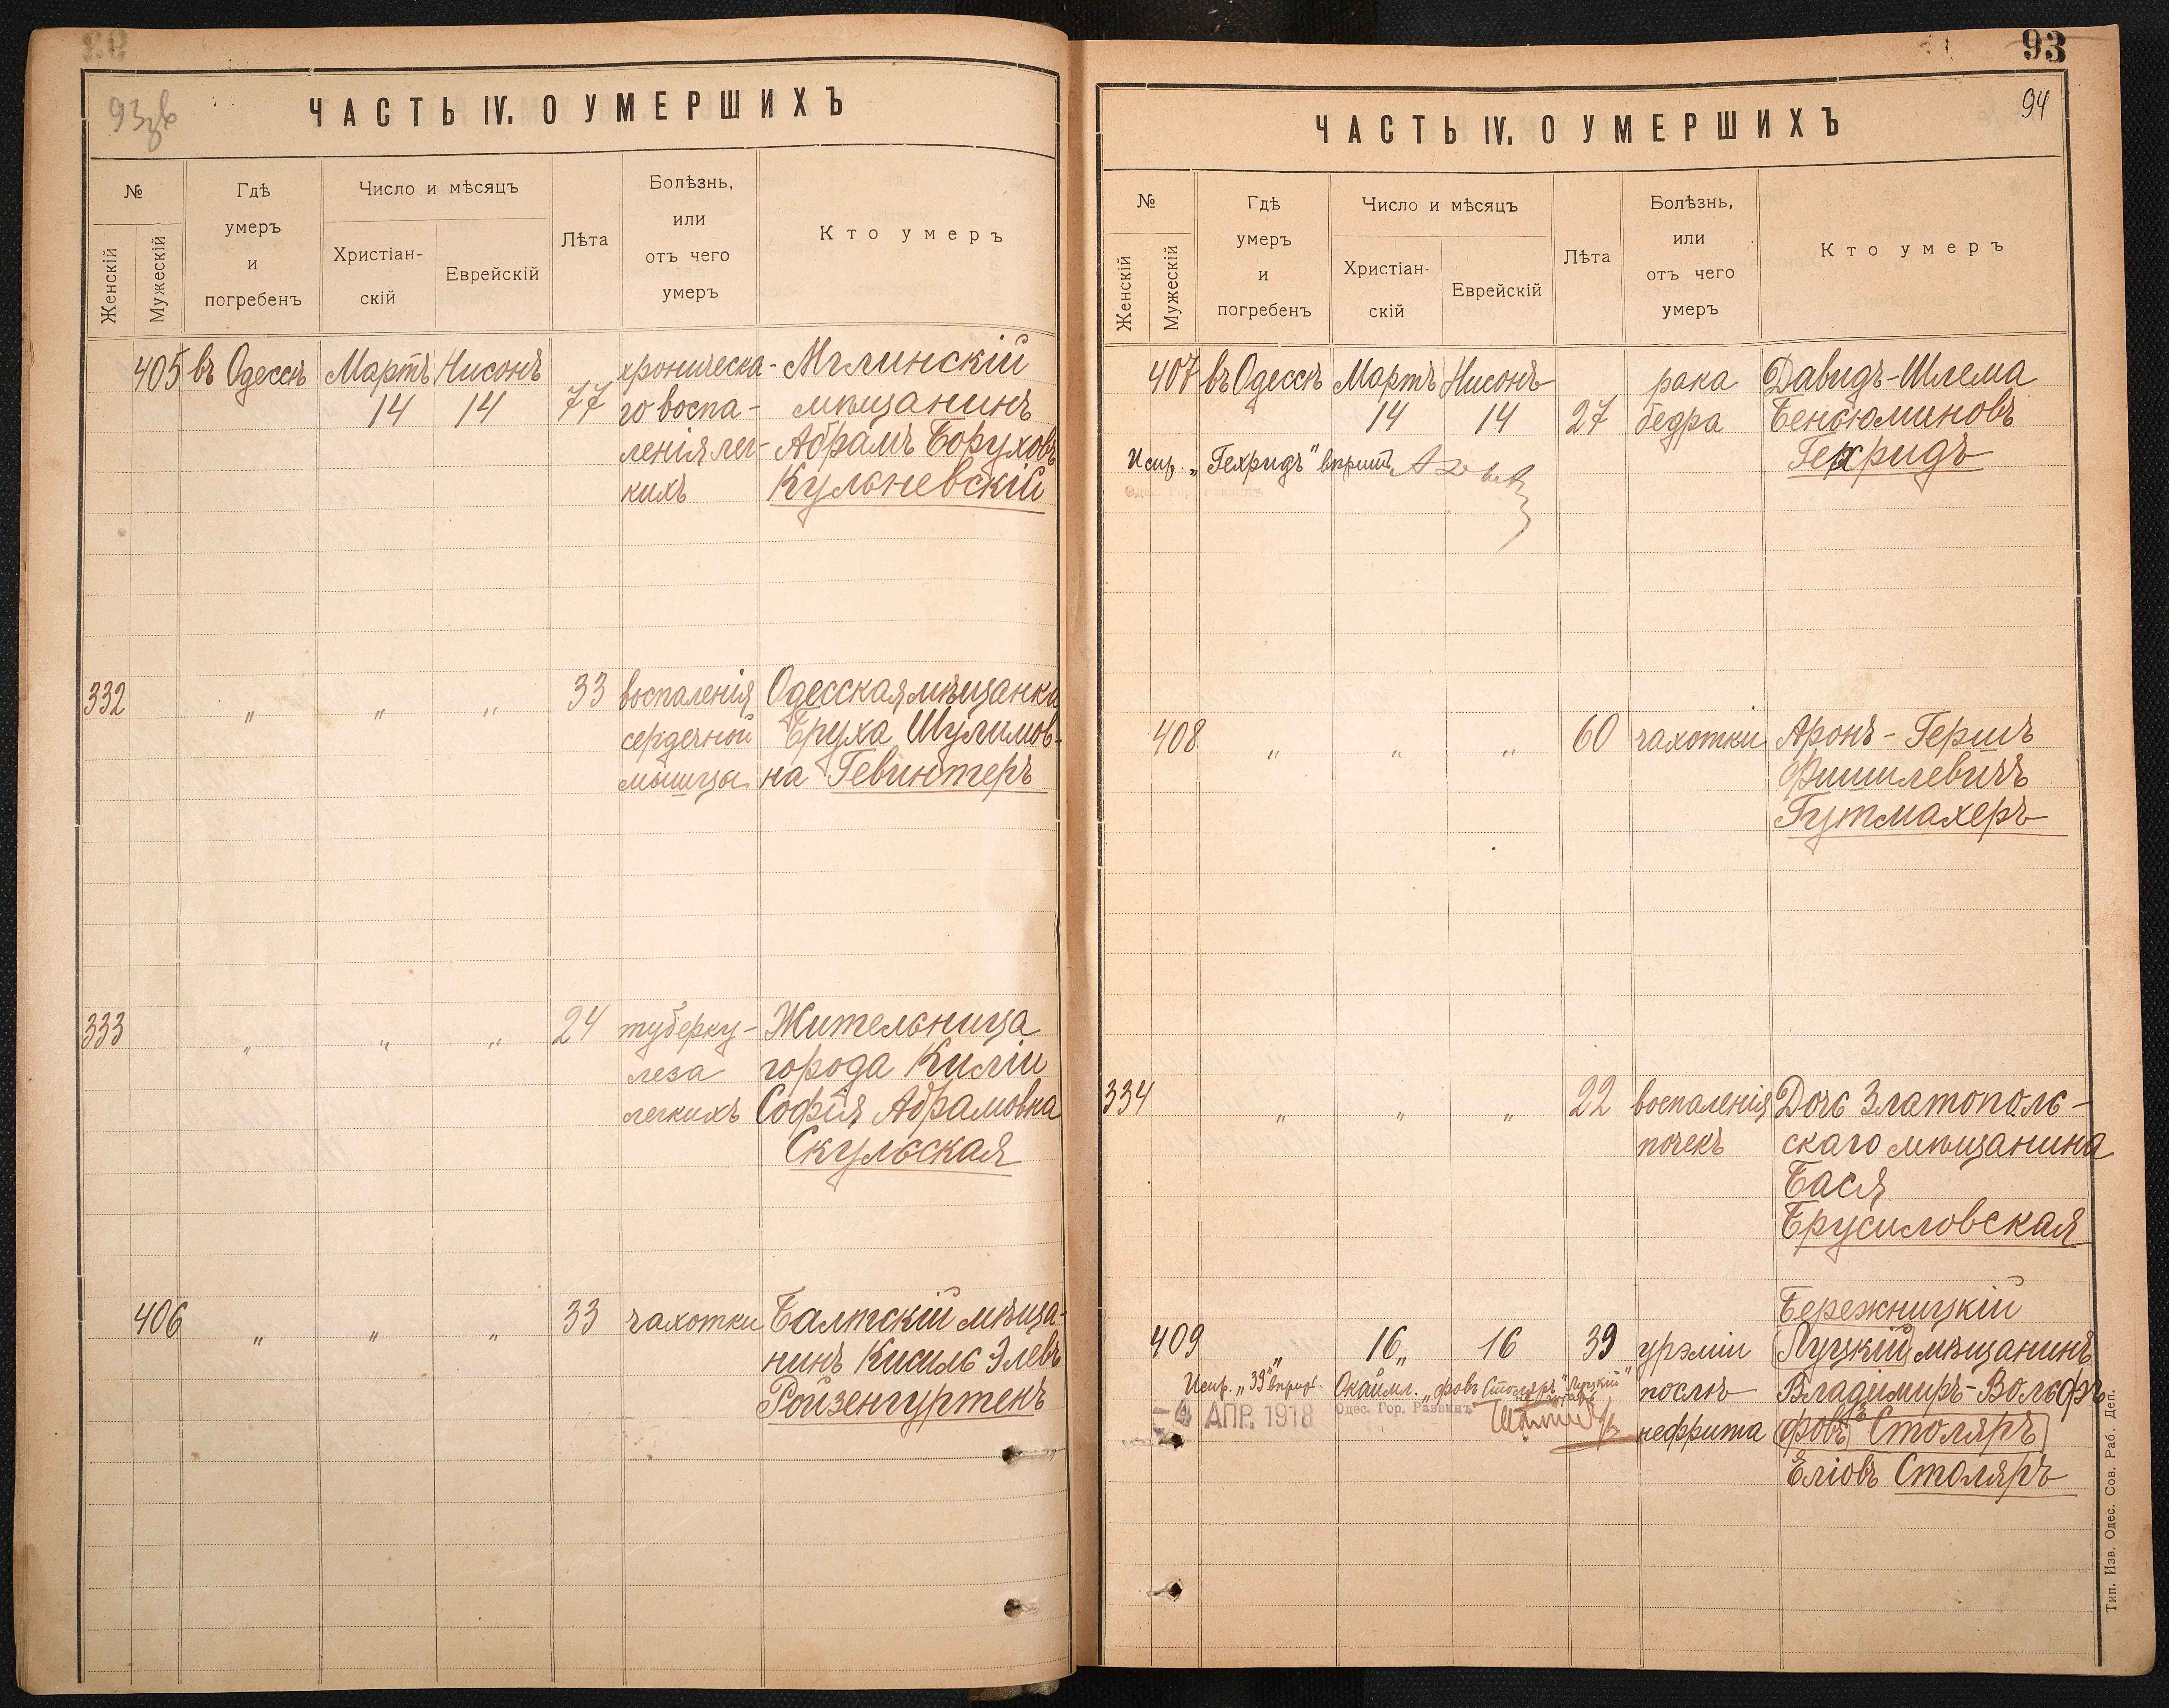 93зв
ЧАСТЬ IV. О УМЕРШИХЪ
№
Женскій
Мужескій
Гдѣ
умеръ
и
погребенъ
Число и мѣсяцъ
Христіан-
скій
Еврейскій
Лѣта
Болѣзнь,
или
отъ чего
умеръ
Кто умеръ
405 въ Одессѣ Мартъ Нисонъ хроническа- Мглинскій
14 14 77 го воспа- мѣщанинъ
ленія лег- Абрамъ Боруховъ
кихъ Кульневскій
332 " " " 33 воспаленія Одесская мѣщанка
сердечной Бруха Шулимов-
мышцы на Гевинтеръ
333 " " " 24 туберку- Жительница
леза города Киліи
легкихъ Софія Абрамовна
Скульская
406 " " " 33 чахотки Балтскій мѣща-
нинъ Кисиль Элевъ
Ройзенгуртенъ
93
94
ЧАСТЬ IV. О УМЕРШИХЪ
№
Женскій
Мужескій
Гдѣ
умеръ
и
погребенъ
Число и мѣсяцъ
Христіан-
скій
Еврейскій
Лѣта
Болѣзнь,
или
отъ чего
умеръ
Кто умеръ
407 въ Одессѣ Мартъ Нисонъ рака Давидъ-Шлема
14 14 27 бедра Беньюминовъ
Гехридъ
Испр. „Гехридъ"
Одес. Гор. Раввинъ
408 " " " 60 чахотки Аронъ-Гершъ
Фишилевичъ
Гутмахеръ
334 " " " 22 воспаленія Дочь Златополь-
почекъ скаго мѣщанина
Бася
Брусиловская
Бережницкій
409 " 16 " 16 39 урэміи Луцкій мѣщанинъ
Испр. „39" Окаймл. „фовъ Столяръ" „Луцкій" послѣ Владимиръ-Вольфъ
4 АПР. 1918 Одес. Гор. Раввинъ
нефрита фовъ Столяръ
Еліовъ Столяръ
Тип. Изв. Одес. Сов. Раб. Деп.